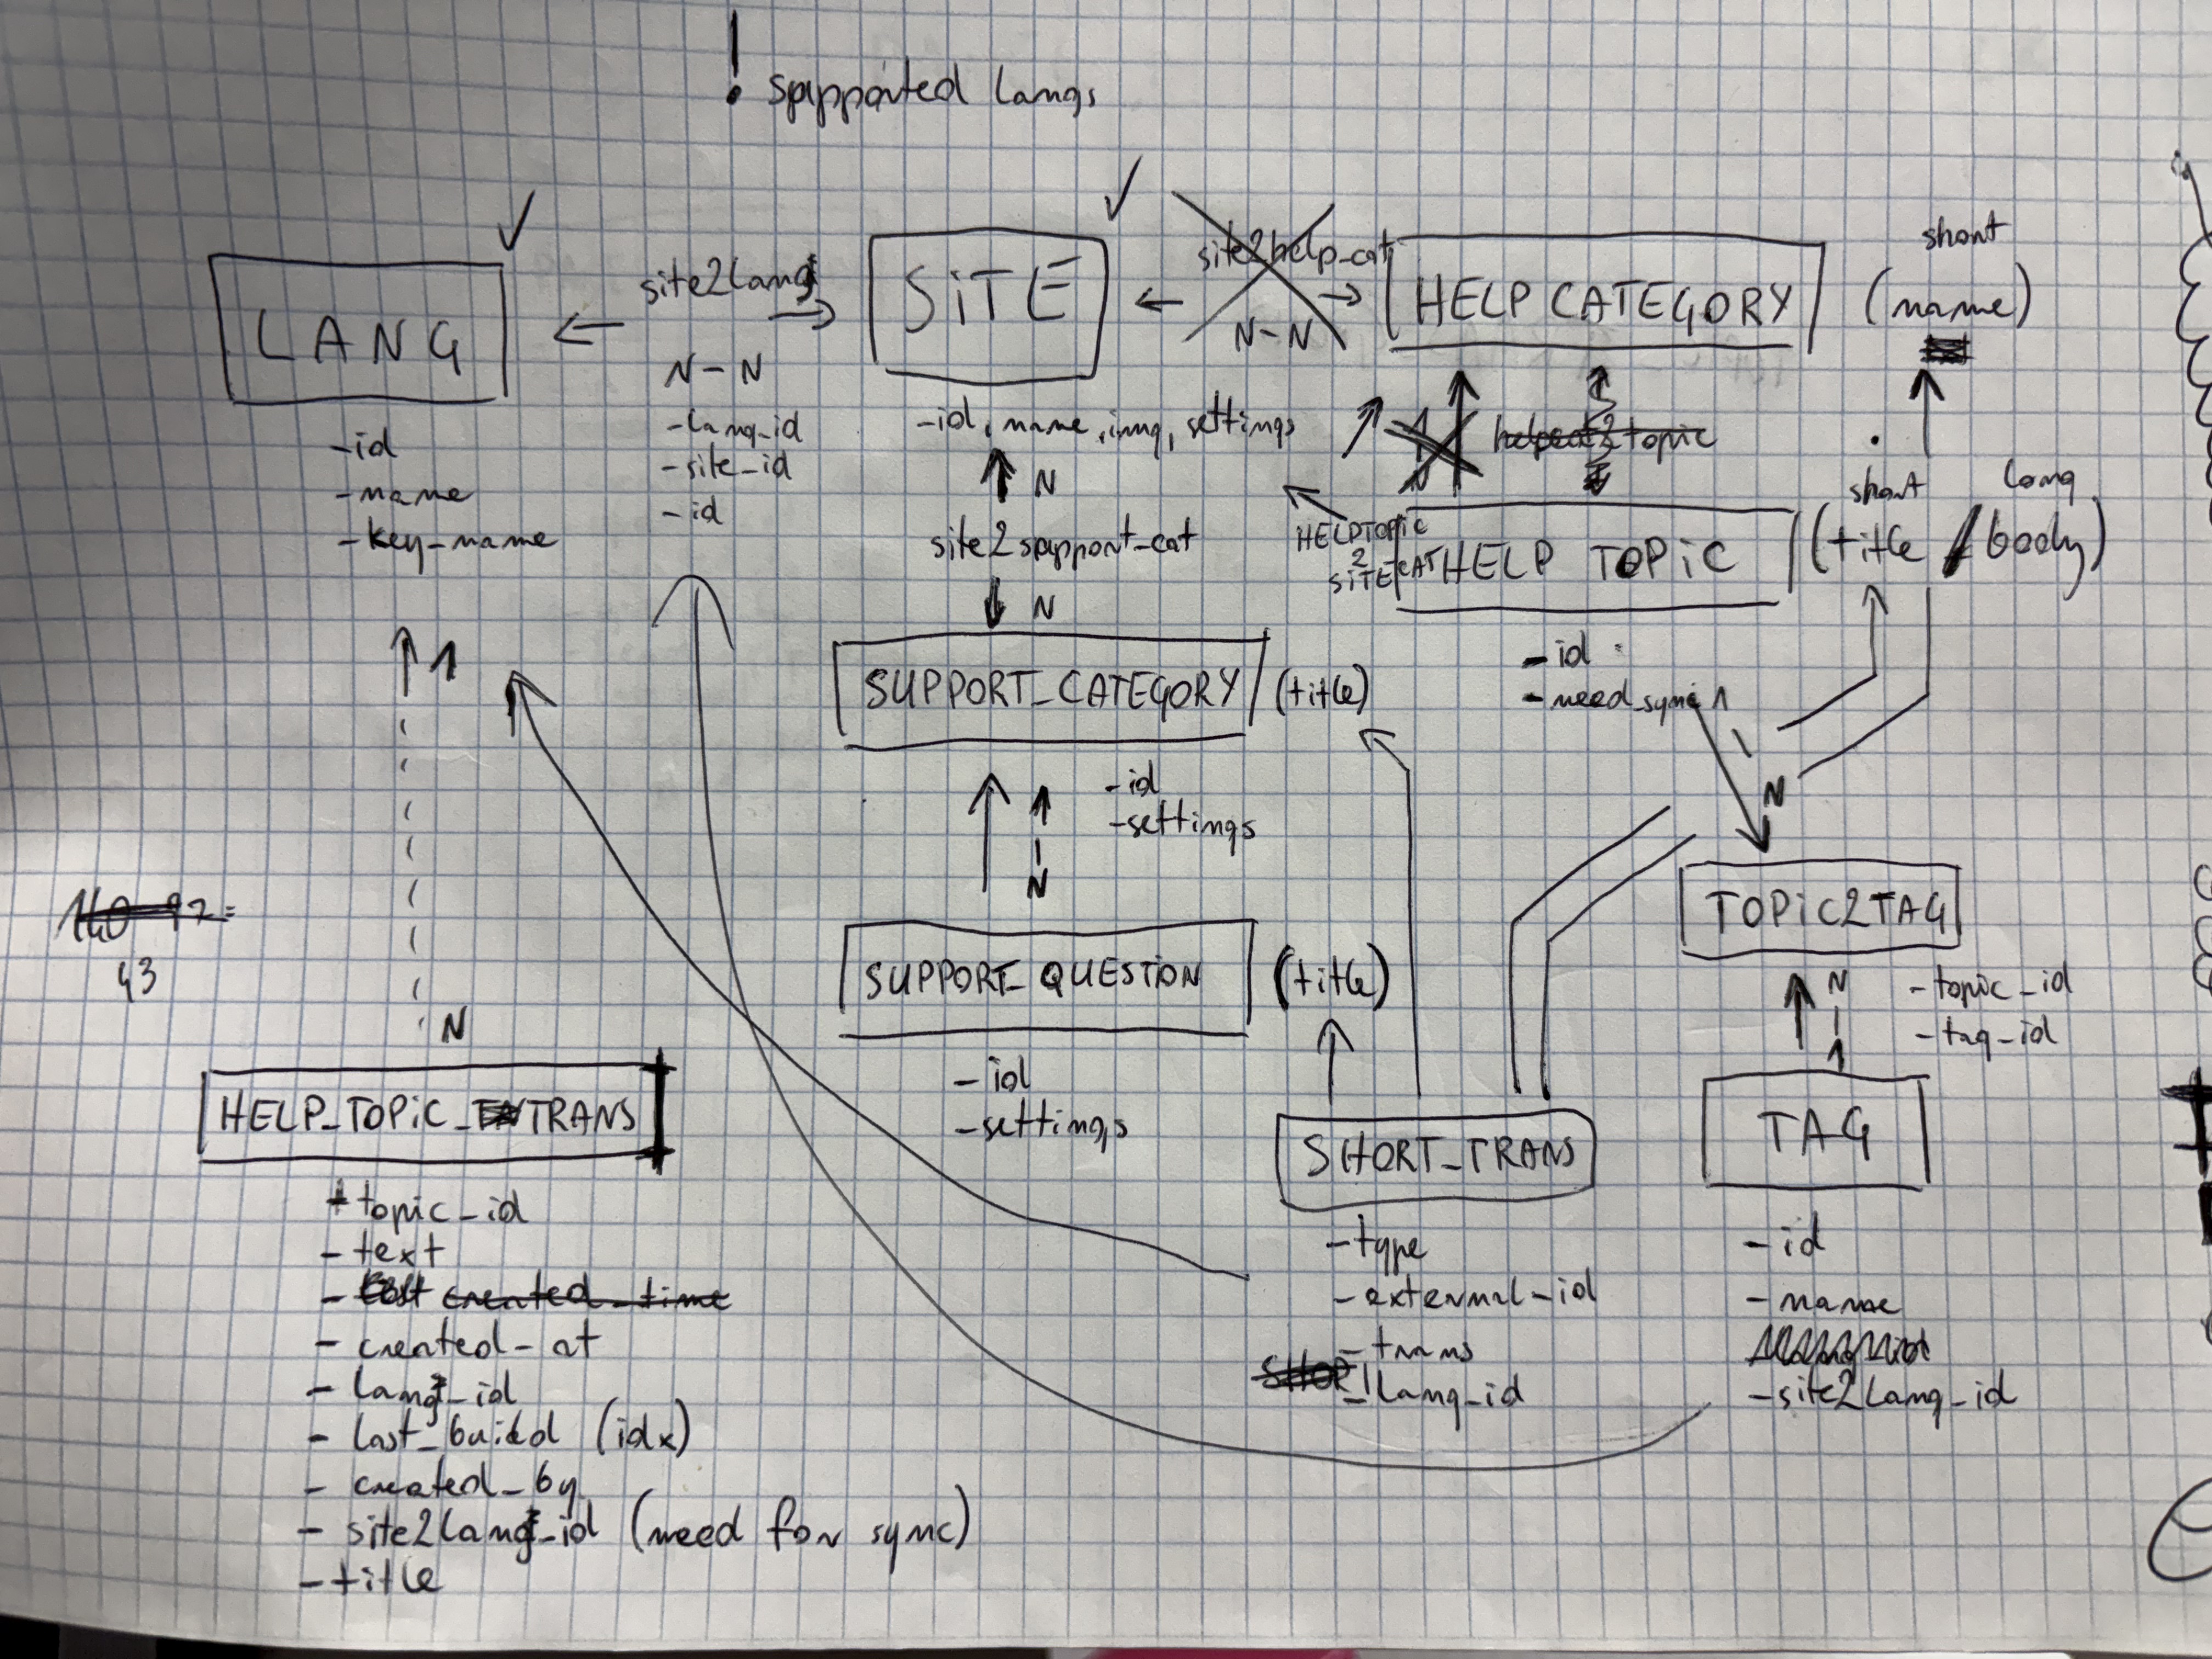 ! supported langs
LANG
-id
-name
-key-name
site2lang
N-N
-lang_id
-site_id
-id
SiTE
-id, name, img, settings
N
site2support_cat
N
site2help_cat
N-N
HELP CATEGORY
short
(name)
helpcat2topic
N
HELPTOPIC
2
SITECAT
HELP TOPiC
short long
(title / body)
-id
-need_sync
1
N
SUPPORT_CATEGORY (title)
-id
-settings
1
N
SUPPORT_QUESTION (title)
-id
-settings
1
N
140-97=
43
HELP_TOPiC_TRANS
+topic_id
-text
- created_time
- created-at
- lang_id
- last_build (idx)
- created_by
- site2lang_id (need for sync)
-title
SHORT_TRANS
-type
-external-id
-trans
SHOR
-lang_id
TOPiC2TAG
-topic_id
-tag_id
N
1
TAG
-id
-name
-site2lang_id